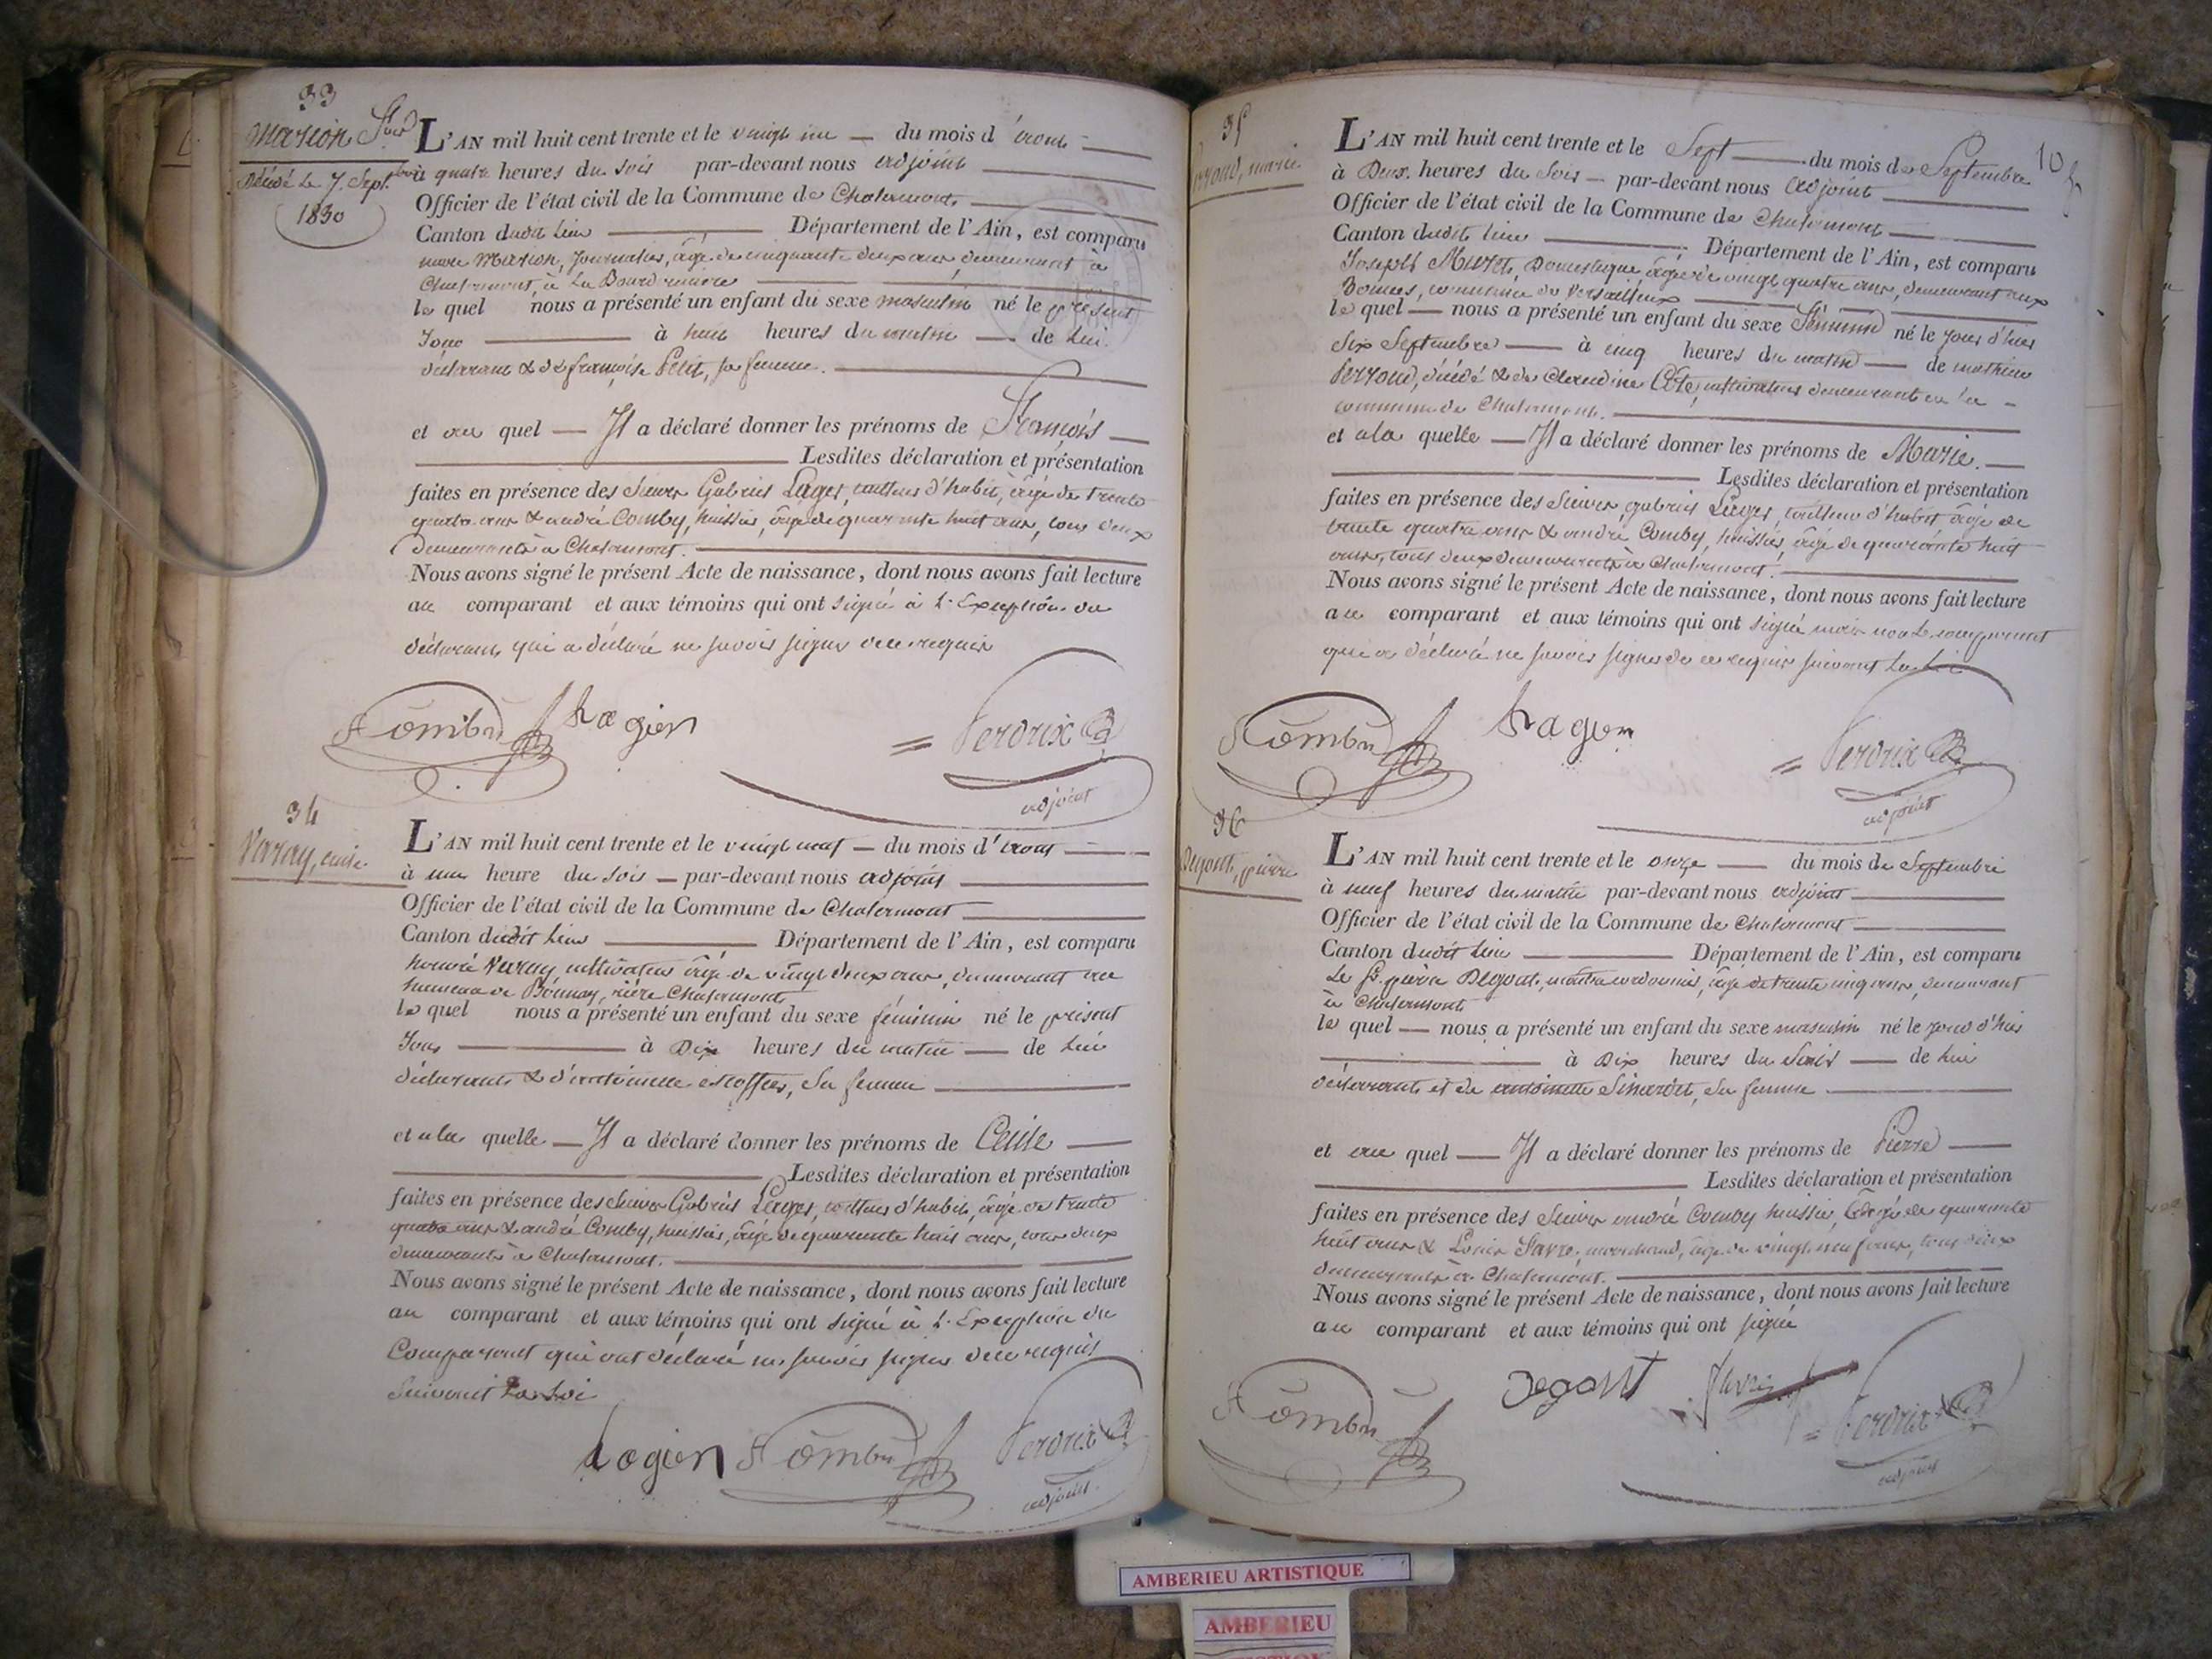 33
Marion, F.ois
Décédé le 7. Sept.bre
1830
L'AN mil huit cent trente et le vingt un — du mois d'août
à quatre heures du soir par-devant nous adjoint
Officier de l'état civil de la Commune de Chalamont
Canton dudit lieu Département de l'Ain, est comparu
Marion, journalier, âgé de cinquante deux ans, demeurant à
Chalamont, à La
le quel nous a présenté un enfant du sexe masculin né le présent
Jour à huit heures du matin — de lui
déclarant & de françoise Petit, sa femme.
et au quel — Il a déclaré donner les prénoms de François
Lesdites déclaration et présentation
faites en présence des Sieurs Gabriel Lager, tailleur d'habit, âgé de trente
quatre ans & andré Comby, huissier, âgé de quarante huit ans, tous deux
demeurants à Chalamont.
Nous avons signé le présent Acte de naissance, dont nous avons fait lecture
au comparant et aux témoins qui ont signé à l'Exception du
déclarant qui a déclaré ne savoir signer de ce requis
Comby Lagier Perdrix
adjoint
34
Verray, Cecile
L'AN mil huit cent trente et le vingt neuf — du mois d'août
à une heure du soir — par-devant nous adjoint
Officier de l'état civil de la Commune de Chalamont
Canton dudit lieu Département de l'Ain, est comparu
honoré Verray, cultivateur âgé de vingt deux ans, demeurant au
hameau de Bonnay, rière Chalamont
le quel nous a présenté un enfant du sexe féminin né le présent
Jour à Dix heures du matin — de lui
déclarant & d'antoinette, sa femme
et a la quelle — Il a déclaré donner les prénoms de Cecile
Lesdites déclaration et présentation
faites en présence des Sieurs Gabriel Lager, tailleur d'habit, âgé de trente
quatre ans & andré Comby, huissier, âgé de quarante huit ans, tous deux
demeurants à Chalamont.
Nous avons signé le présent Acte de naissance, dont nous avons fait lecture
au comparant et aux témoins qui ont signé à l'Exception du
Comparant qui ont déclaré ne savoir signer de ce requis
Suivant La Loi
Lagier Comby Perdrix
adjoint
35
Perroud, marie
10
L'AN mil huit cent trente et le Sept du mois de Septembre
à Deux heures du Soir — par-devant nous adjoint
Officier de l'état civil de la Commune de Chalamont
Canton dudit lieu Département de l'Ain, est comparu
Joseph Muret, Domestique âgé de vingt quatre ans, demeurant aux
commune de Versailleux
le quel — nous a présenté un enfant du sexe féminin né le jour d'hier
six Septembre — à cinq heures du matin — de mathieu
Perroud, décédé & de Claudine Côte, cultivateurs demeurant en la
commune de Chalamont.
et a la quelle — Il a déclaré donner les prénoms de Marie.
Lesdites déclaration et présentation
faites en présence des Sieurs gabriel Lager, tailleur d'habit âgé de
trente quatre ans & andré Comby, huissier, âgé de quarante huit
ans, tous deux demeurants à Chalamont.
Nous avons signé le présent Acte de naissance, dont nous avons fait lecture
au comparant et aux témoins qui ont signé mais non le comparant
qui a déclaré ne savoir signer de ce requis suivant La Loi
Comby Lagier Perdrix
adjoint
36
Degout, pierre
L'AN mil huit cent trente et le onze du mois de Septembre
à neuf heures du matin par-devant nous adjoint
Officier de l'état civil de la Commune de Chalamont
Canton dudit lieu Département de l'Ain, est comparu
Le S. pierre Degout, maître cordonnier, âgé de trente cinq ans, demeurant
à Chalamont
le quel — nous a présenté un enfant du sexe masculin né le jour d'hier
à Dix heures du Soir — de lui
déclarant et de antoinette Simardet, sa femme
et au quel — Il a déclaré donner les prénoms de Pierre
Lesdites déclaration et présentation
faites en présence des Sieurs andré Comby huissier, âgé de quarante
huit ans & Louis Favre, marchand, âgé de vingt neuf ans, tous deux
demeurants à Chalamont.
Nous avons signé le présent Acte de naissance, dont nous avons fait lecture
au comparant et aux témoins qui ont signé
Comby Degout Favre Perdrix
adjoint
AMBERIEU ARTISTIQUE
AMBERIEU